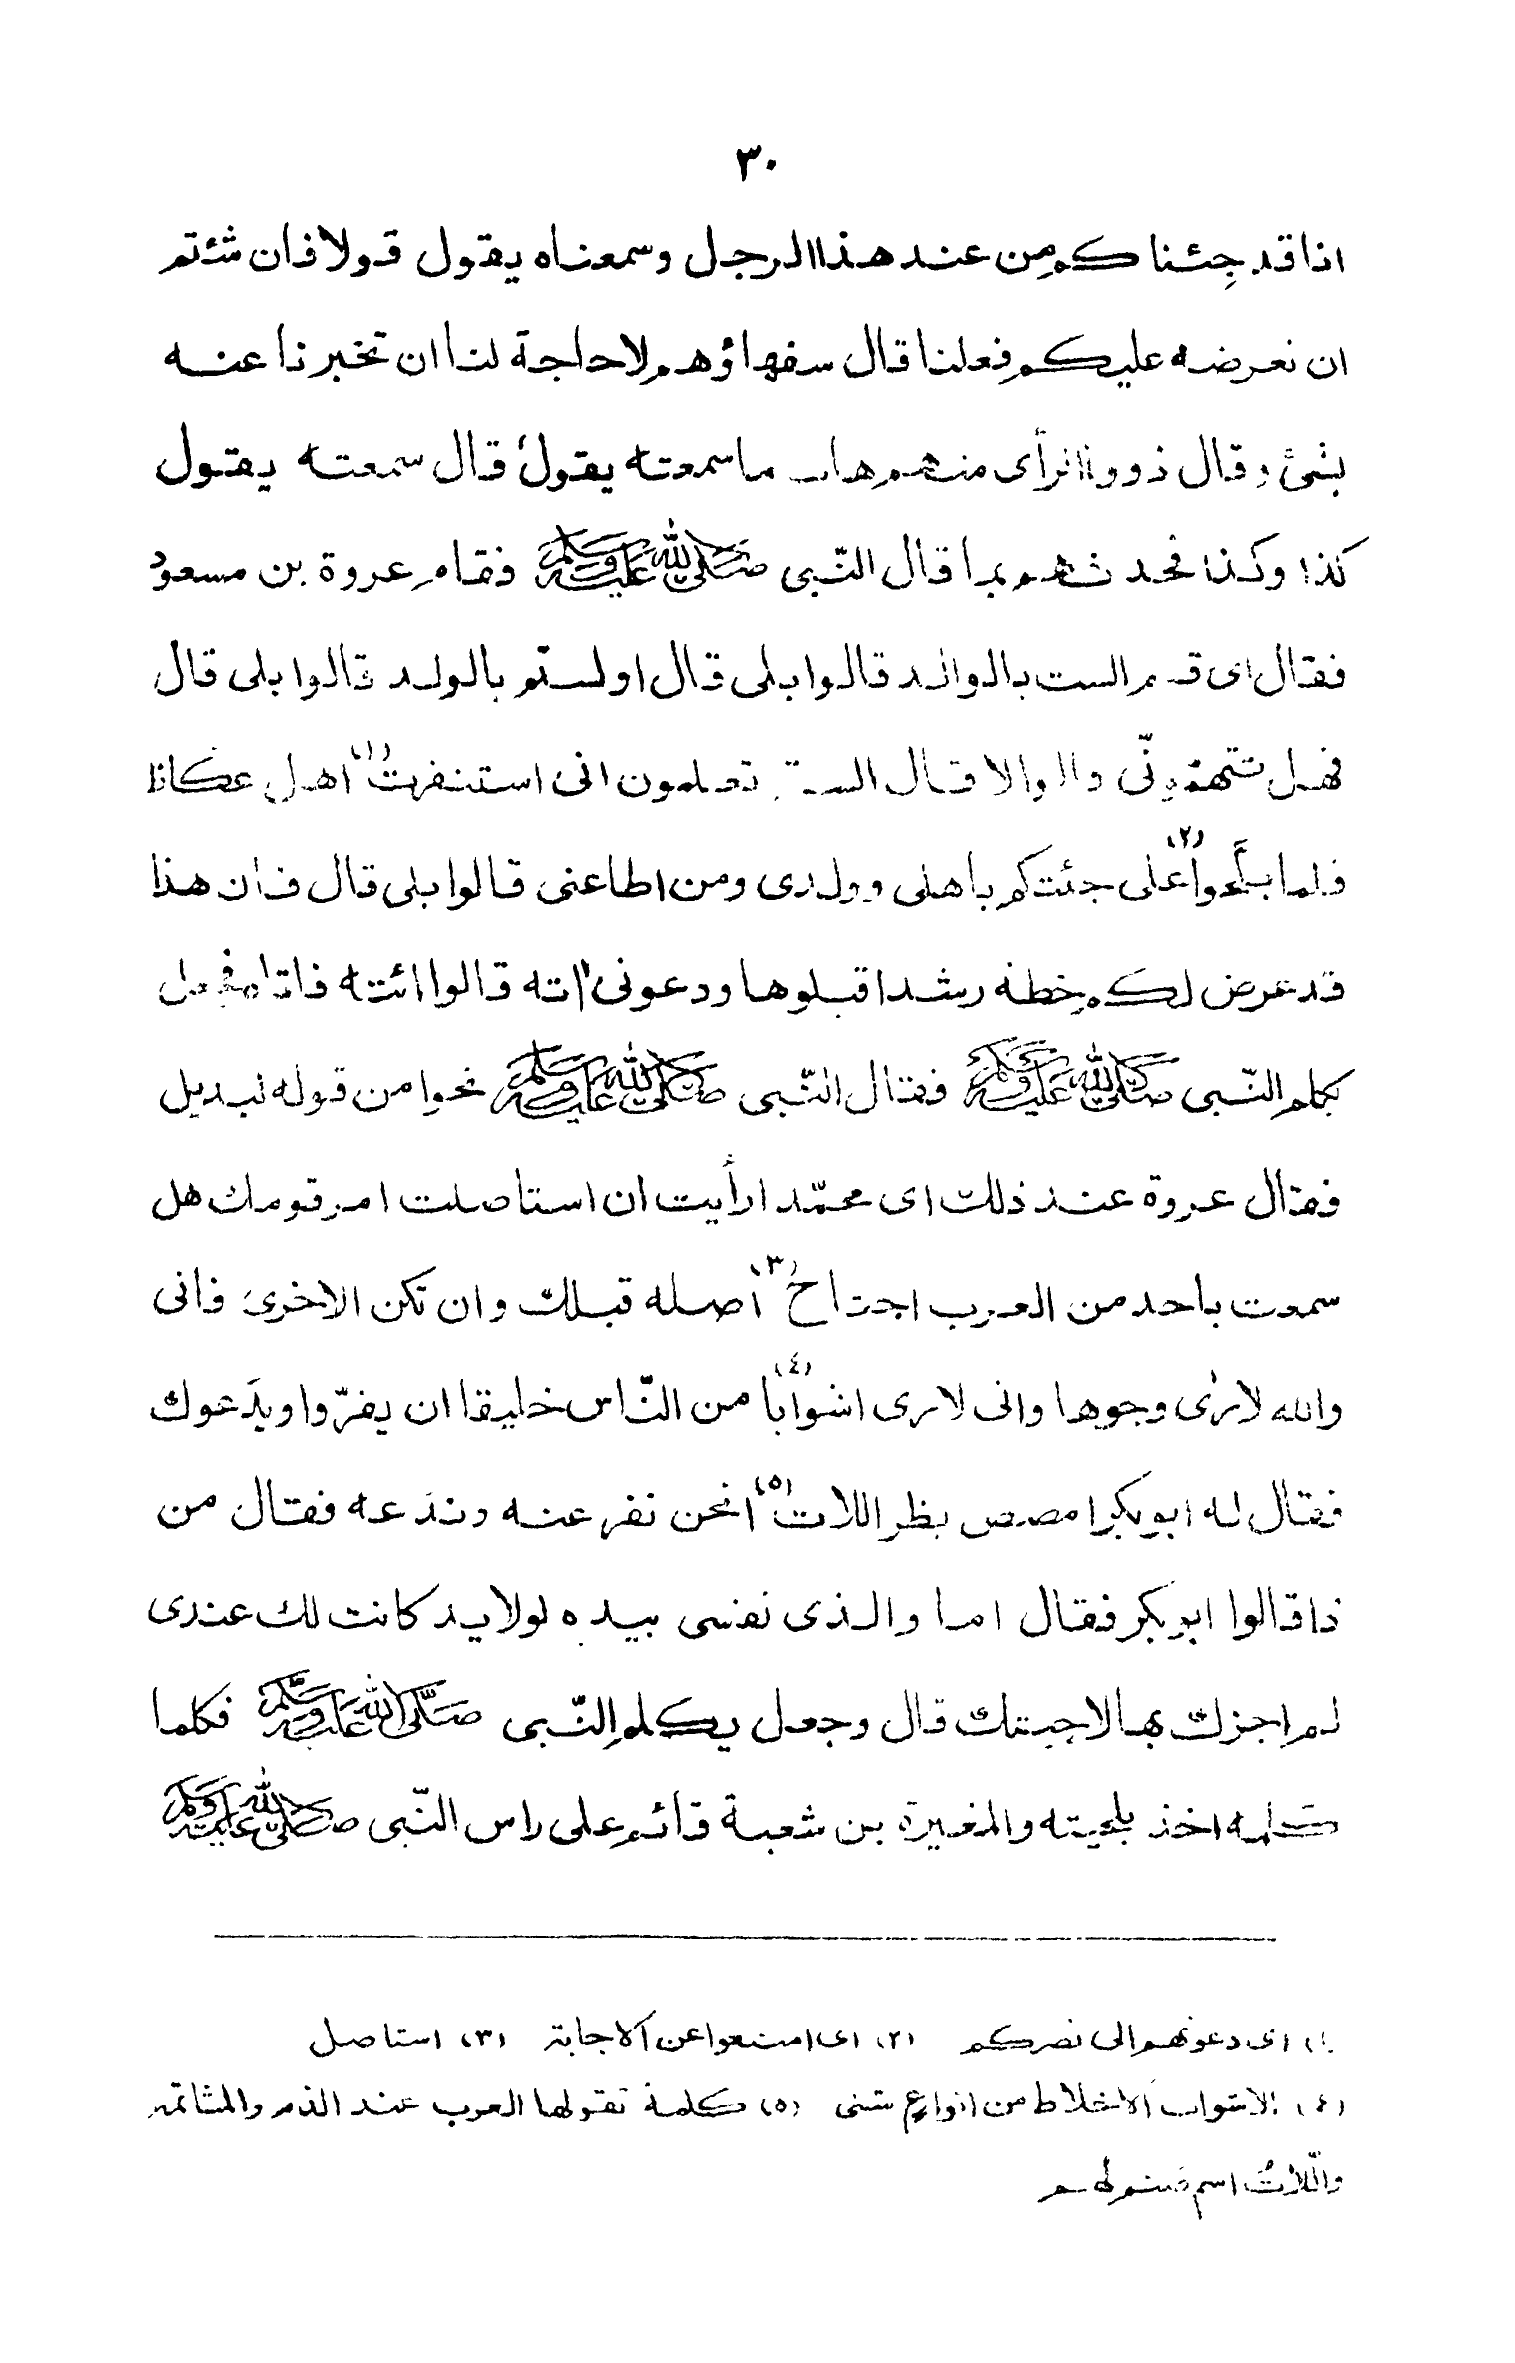 ٣٠
انا قد جئناكم من عند هذا الرجل وسمعناه يقول قولا فان شئتم
ان نعرضه عليكم فعلنا قال سفهاؤهم لا حاجة لنا ان تخبرنا عنه
بشئ وقال ذووا الرأى منهم هات ما سمعته يقول قال سمعته يقول
كذا وكذا فحدثهم بما قال النّبى ﷺ فقام عروة بن مسعود
فقال اى قوم الست بالوالد قالوا بلى قال اولستم بالولد قالوا بلى قال
فهل تتهمونّى قالوا لا قال الستم تعلمون انى استنفرت (١) اهل عكاظ
فلما بلّحوا (٢) على جئتكم باهلى وولدى ومن اطاعنى قالوا بلى قال فان هذا
قد عرض لكم خطة رشد اقبلوها ودعونى اته قالوا ائته فاتاه فجعل
يكلم النّبى ﷺ فقال النّبى ﷺ نحوا من قوله لبديل
فقال عروة عند ذلك اى محمّد ارأيت ان استاصلت امر قومك هل
سمعت باحد من العرب اجتاح (٣) اصله قبلك وان تكن الاخرى فانى
والله لارى وجوها وانى لارى اشوابا (٤) من النّاس خليقا ان يفرّوا ويدعوك
فقال له ابو بكر امصص بظر اللات (٥) انحن نفر عنه وندعه فقال من
ذا قالوا ابو بكر فقال اما والذى نفسى بيده لولا يد كانت لك عندى
لم اجزك بها لاجبتك قال وجعل يكلم النّبى ﷺ فكلما
كلمه اخذ بلحيته والمغيرة بن شعبة قائم على راس النّبى ﷺ
(١) اى دعوتهم الى نصركم (٢) اى امتنعوا عن الاجابة (٣) استاصل
(٤) الاشواب الاخلاط من انواع شتى (٥) كلمة تقولها العرب عند الذم والمشاتمة
والّلات اسم صنم لهم